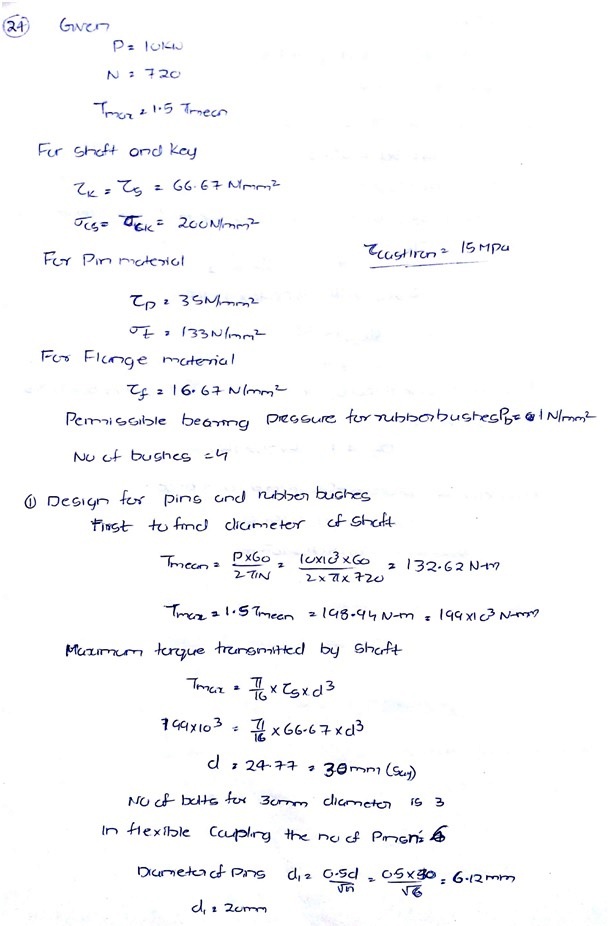 24 Given
P = 10KW
N = 720
Tmax = 1.5 Tmean
For shaft and key
τk = τs = 66.67 N/mm²
σcs = σck = 200N/mm²
τcastiron = 15 MPa
For Pin material
τp = 35N/mm²
σt = 133N/mm²
For Flange material
τf = 16.67 N/mm²
Permissible bearing pressure for rubber bushes Pb = 1N/mm²
No of bushes = 4
① Design for pins and rubber bushes
First to find diameter of shaft
Tmean = P×60/2πN = 10×10³×60/2×π×720 = 132.62 N-m
Tmax = 1.5Tmean = 198.94 N-m = 199×10³ N-mm
Maximum torque transmitted by shaft
Tmax = π/16 × τs × d³
199×10³ = π/16 × 66.67 × d³
d = 24.77 = 30mm (say)
No of bolts for 30mm diameter is 3
In flexible Coupling the no of Pins n = 6
Diameter of Pins d₁ = 0.5d/√n = 0.5×30/√6 = 6.12mm
d₁ = 20mm